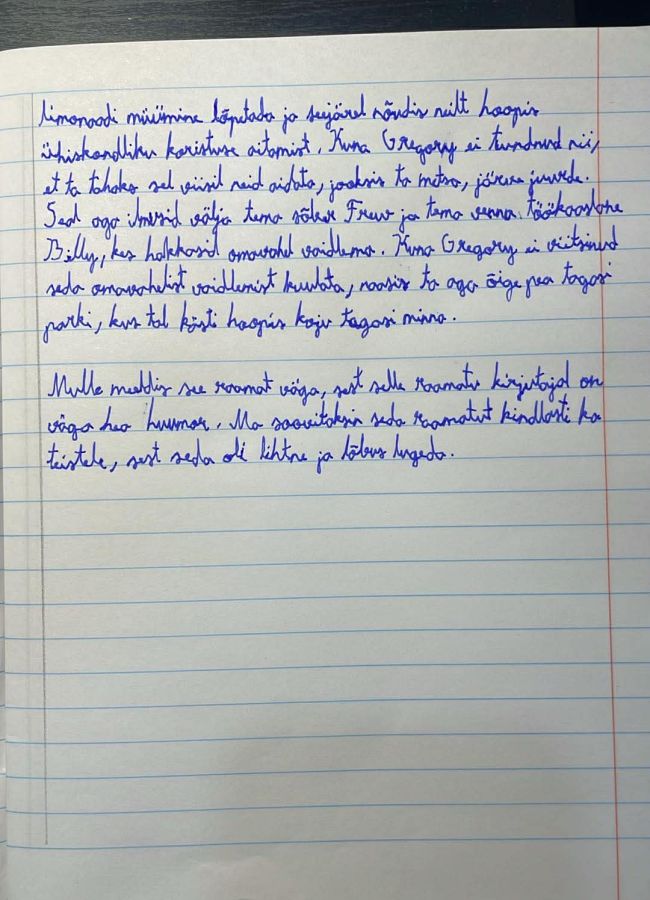 limonaadi müümine lõpetada ja seejärel nõudis neilt hoopis
ühiskondliku karistuse aitamist. Kuna Gregory ei tundnud nii,
et ta tahaks sel viisil neid aidata, jooksis ta metsa, järve juurde.
Seal aga ilmusid välja tema sõber Frew ja tema venna töökaaslane
Billy, kes hakkasid omavahel vaidlema. Kuna Gregory ei viitsinud
seda omavahelist vaidlemist kuulata, naasis ta aga õige pea tagasi
parki, kus tal kästi hoopis koju tagasi minna.
Mulle meeldis see raamat väga, sest selle raamatu kirjutajal on
väga hea huumor. Ma soovitaksin seda raamatut kindlasti ka
teistele, sest seda oli lihtne ja lõbus lugeda.